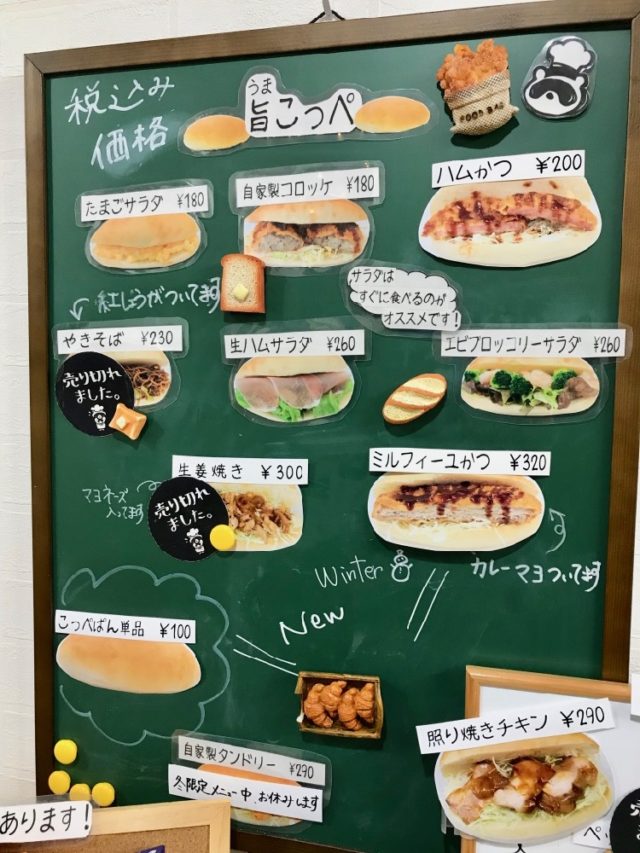 税込み
価格
うま
旨こっぺ
FOOD BAG
たまごサラダ ¥180
自家製コロッケ ¥180
ハムかつ ¥200
紅しょうがついてます
サラダは
すぐに食べるのが
オススメです!
やきそば ¥230
売り切れ
ました。
生ハムサラダ ¥260
エビブロッコリーサラダ ¥260
生姜焼き ¥300
マヨネーズ
入ってます
売り切れ
ました。
ミルフィーユかつ ¥320
カレーマヨついてます
Winter
New
こっぺぱん単品 ¥100
自家製タンドリー ¥290
冬限定メニュー中、お休みします
照り焼きチキン ¥290
あります!